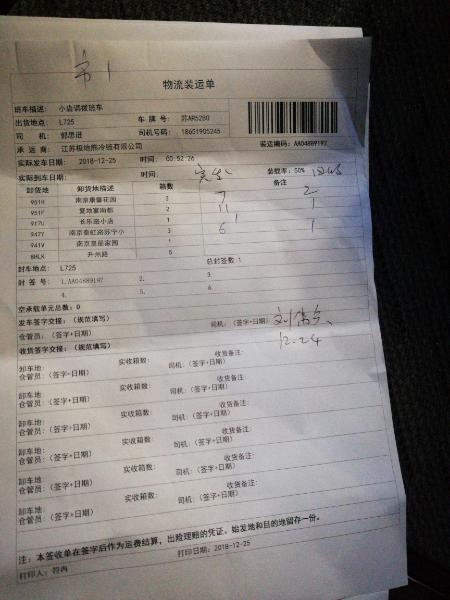 物流装运单
班车描述: 小店调拨班车
出货地点: L725 车牌号: 苏AR52B0
司机: 郭思进 司机号码: 18651905245
承运商: 江苏极地熊冷链有限公司 装运编码: AA04889192
实际发车日期: 2018-12-25 时间: 00:52:26 装载率: 50%
实际到车日期: 时间: 备注
卸货地 卸货地描述 箱数
951H 南京康馨花园 3 7 2
951F 复地宴南都 2 11 1
917U 长乐路小店 1 1
947Y 南京泰虹路苏宁小 3 6 1
941V 南京皇册家园 1
8HLK 升州路 5
封车地点: L725 总封签数:1
封签号: 1.AA04889197 2. 3.
4. 5. 6.
空承载单元总数: 0
发车签字交接:(规范填写)
仓管员:(签字+日期) 司机:(签字+日期)
12.24
收货签字交接:(规范填写)
卸车地: 实收箱数: 收货备注:
仓管员:(签字+日期) 司机:(签字+日期)
卸车地: 实收箱数: 收货备注:
仓管员:(签字+日期) 司机:(签字+日期)
卸车地: 实收箱数: 收货备注:
仓管员:(签字+日期) 司机:(签字+日期)
卸车地: 实收箱数: 收货备注:
仓管员:(签字+日期) 司机:(签字+日期)
卸车地: 实收箱数: 收货备注:
仓管员:(签字+日期) 司机:(签字+日期)
卸车地: 实收箱数: 收货备注:
仓管员:(签字+日期) 司机:(签字+日期)
注: 本签收单在签字后作为运费结算,出险理赔的凭证,始发地和目的地留存一份。
打印人: 符冉 打印日期: 2018-12-25